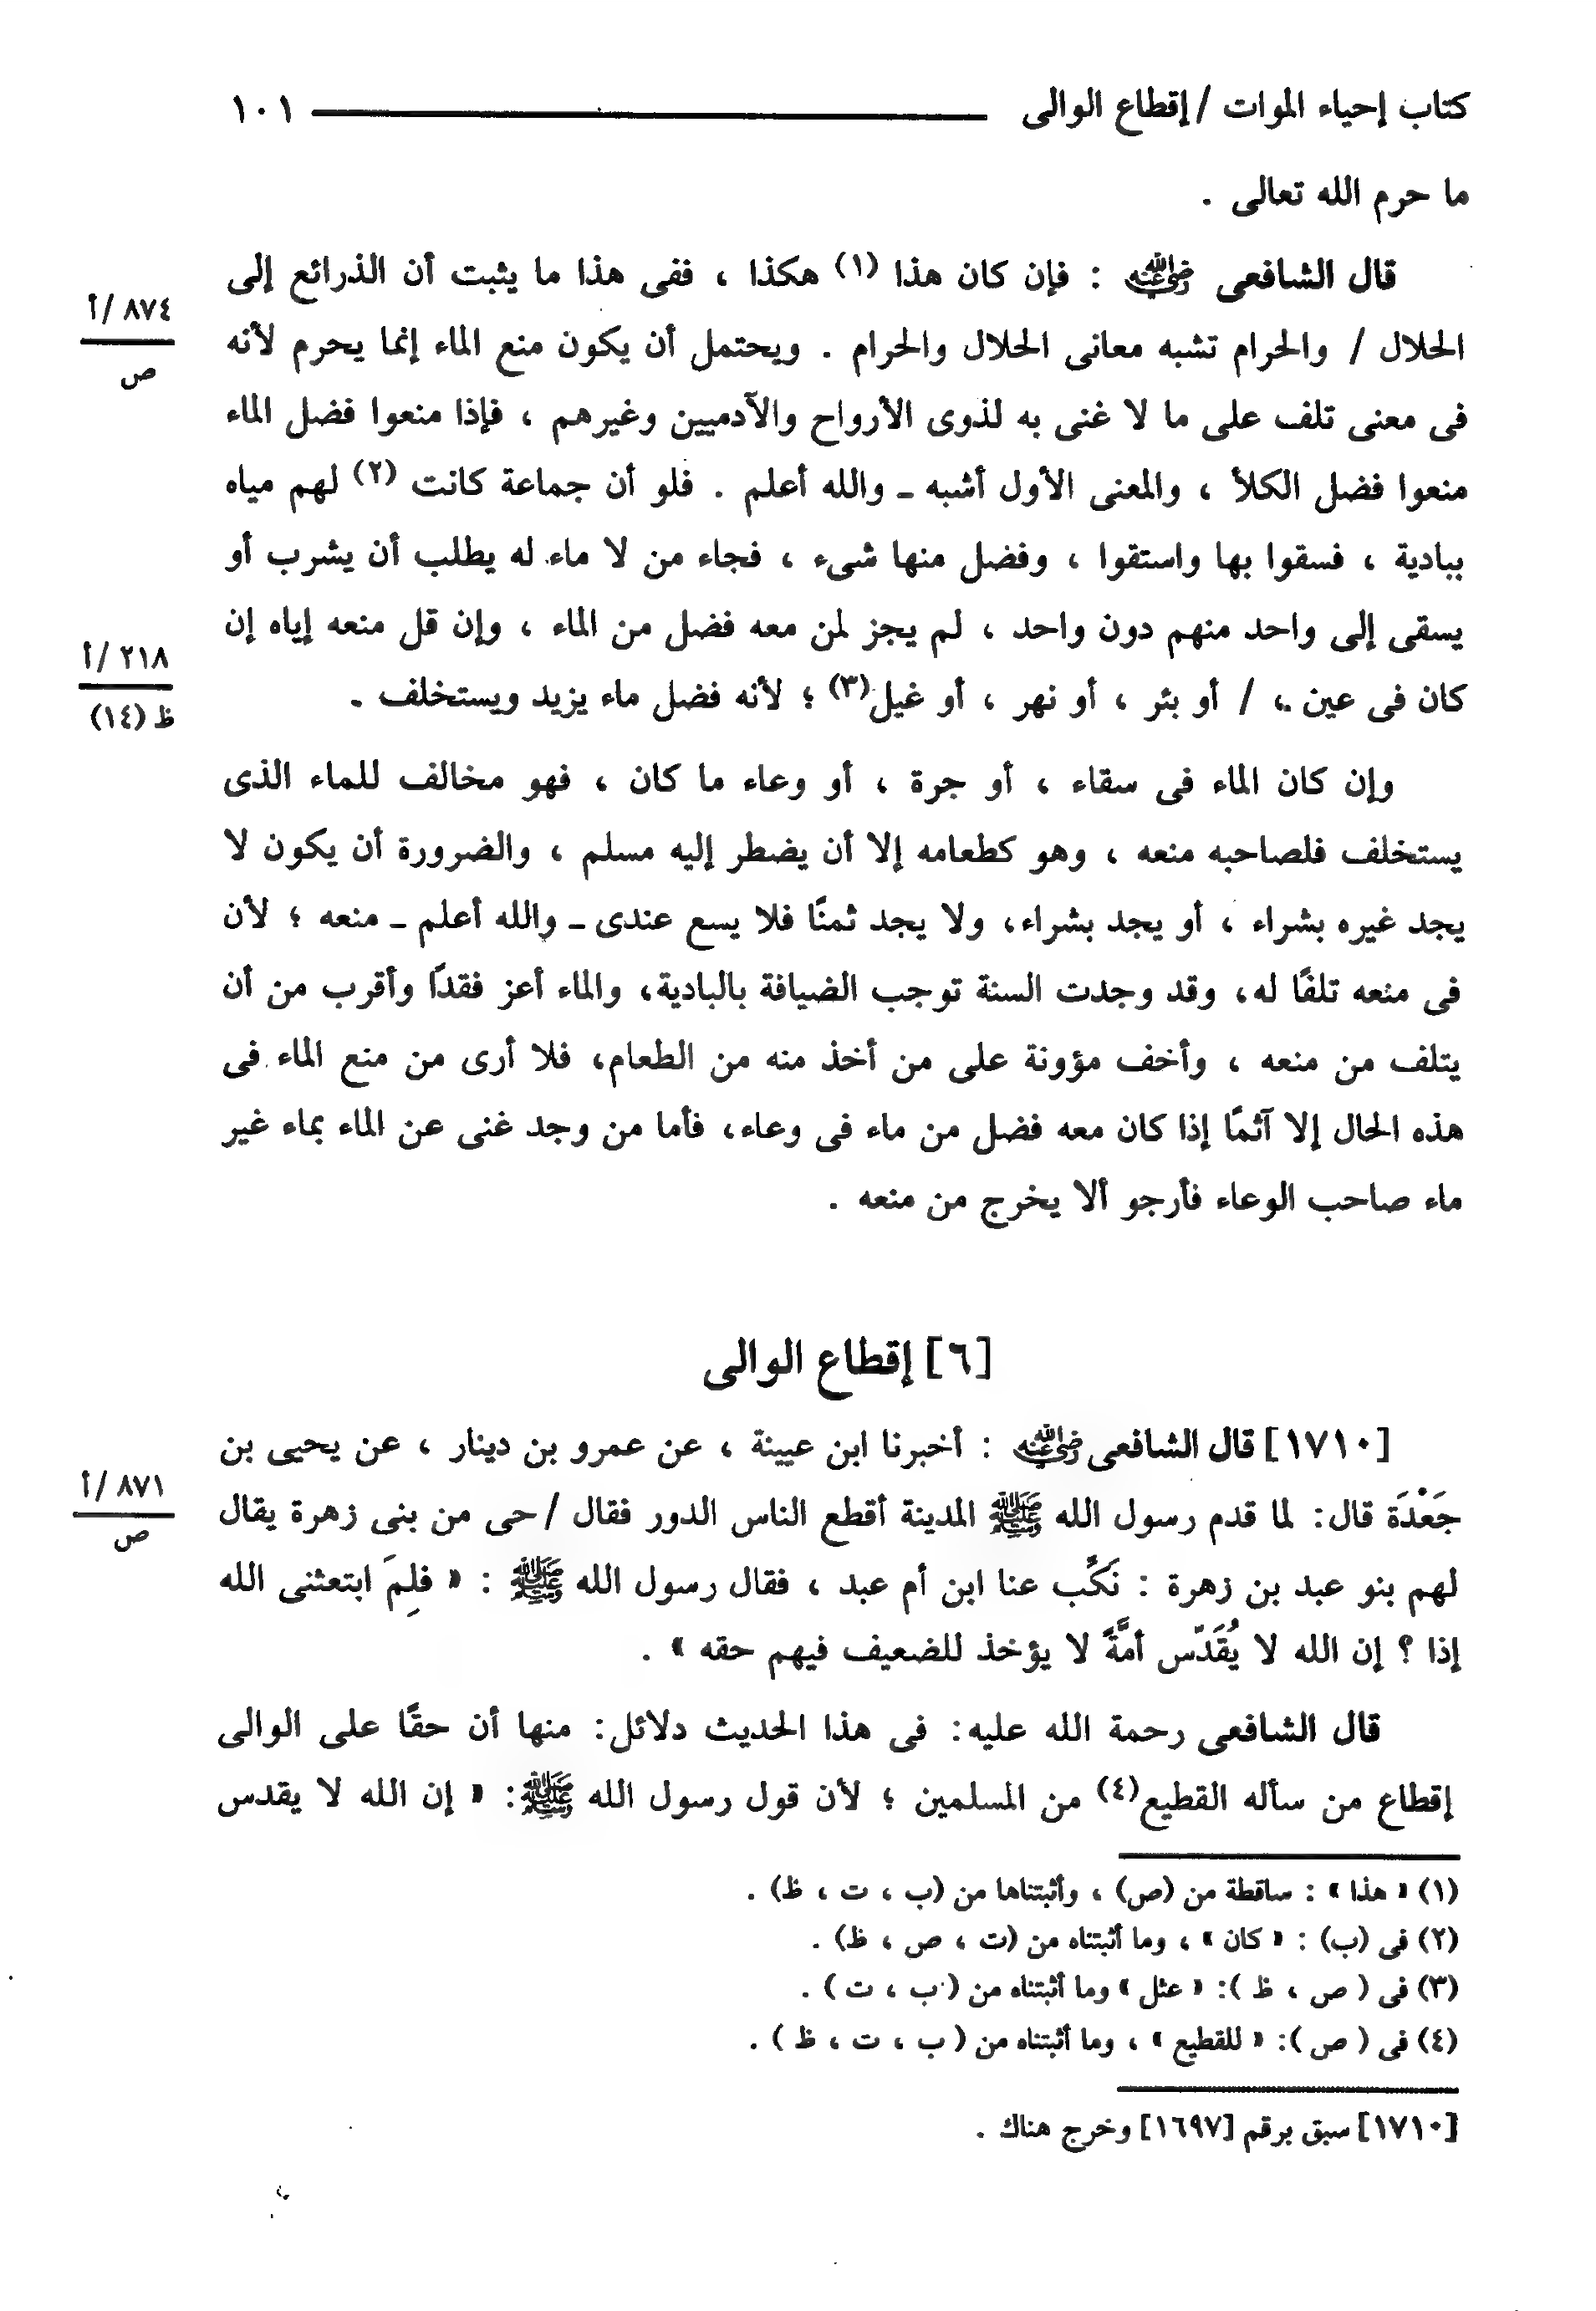 كتاب إحياء الموات / إقطاع الوالى ١٠١
ما حرم الله تعالى .
قال الشافعى رضي الله عنه : فإن كان هذا (١) هكذا ، ففى هذا ما يثبت أن الذرائع إلى
٨٧٤ /أ
ص
الحلال / والحرام تشبه معانى الحلال والحرام . ويحتمل أن يكون منع الماء إنما يحرم لأنه
فى معنى تلف على ما لا غنى به لذوى الأرواح والآدميين وغيرهم ، فإذا منعوا فضل الماء
منعوا فضل الكلأ ، والمعنى الأول أشبه ـ والله أعلم . فلو أن جماعة كانت (٢) لهم مياه
ببادية ، فسقوا بها واستقوا ، وفضل منها شىء ، فجاء من لا ماء له يطلب أن يشرب أو
يسقى إلى واحد منهم دون واحد ، لم يجز لمن معه فضل من الماء ، وإن قل منعه إياه إن
٢١٨ /أ
ظ (١٤)
كان فى عين ، / أو بئر ، أو نهر ، أو غيل(٣) ؛ لأنه فضل ماء يزيد ويستخلف .
وإن كان الماء فى سقاء ، أو جرة ، أو وعاء ما كان ، فهو مخالف للماء الذى
يستخلف فلصاحبه منعه ، وهو كطعامه إلا أن يضطر إليه مسلم ، والضرورة أن يكون لا
يجد غيره بشراء ، أو يجد بشراء، ولا يجد ثمنًا فلا يسع عندى ـ والله أعلم ـ منعه ؛ لأن
فى منعه تلفًا له، وقد وجدت السنة توجب الضيافة بالبادية، والماء أعز فقدًا وأقرب من أن
يتلف من منعه ، وأخف مؤونة على من أخذ منه من الطعام، فلا أرى من منع الماء فى
هذه الحال إلا آثمًا إذا كان معه فضل من ماء فى وعاء، فأما من وجد غنى عن الماء بماء غير
ماء صاحب الوعاء فأرجو ألا يخرج من منعه .
[٦] إقطاع الوالى
[١٧١٠] قال الشافعى رضي الله عنه : أخبرنا ابن عيينة ، عن عمرو بن دينار ، عن يحيى بن
٨٧١ /أ
ص
جَعْدَة قال: لما قدم رسول الله ﷺ المدينة أقطع الناس الدور فقال / حى من بنى زهرة يقال
لهم بنو عبد بن زهرة : نَكِّب عنا ابن أم عبد ، فقال رسول الله ﷺ : « فلِمَ ابتعثنى الله
إذا ؟ إن الله لا يُقَدّس أمَّةً لا يؤخذ للضعيف فيهم حقه » .
قال الشافعى رحمة الله عليه: فى هذا الحديث دلائل: منها أن حقًا على الوالى
إقطاع من سأله القطيع(٤) من المسلمين ؛ لأن قول رسول الله ﷺ: « إن الله لا يقدس
(١) « هذا » : ساقطة من (ص) ، وأثبتناها من (ب ، ت ، ظ) .
(٢) فى (ب) : « كان » ، وما أثبتناه من (ت ، ص ، ظ) .
(٣) فى ( ص ، ظ ): « عثل » وما أثبتناه من ( ب ، ت ) .
(٤) فى ( ص ): « للقطيع » ، وما أثبتناه من ( ب ، ت ، ظ ) .
[١٧١٠] سبق برقم [١٦٩٧] وخرج هناك .